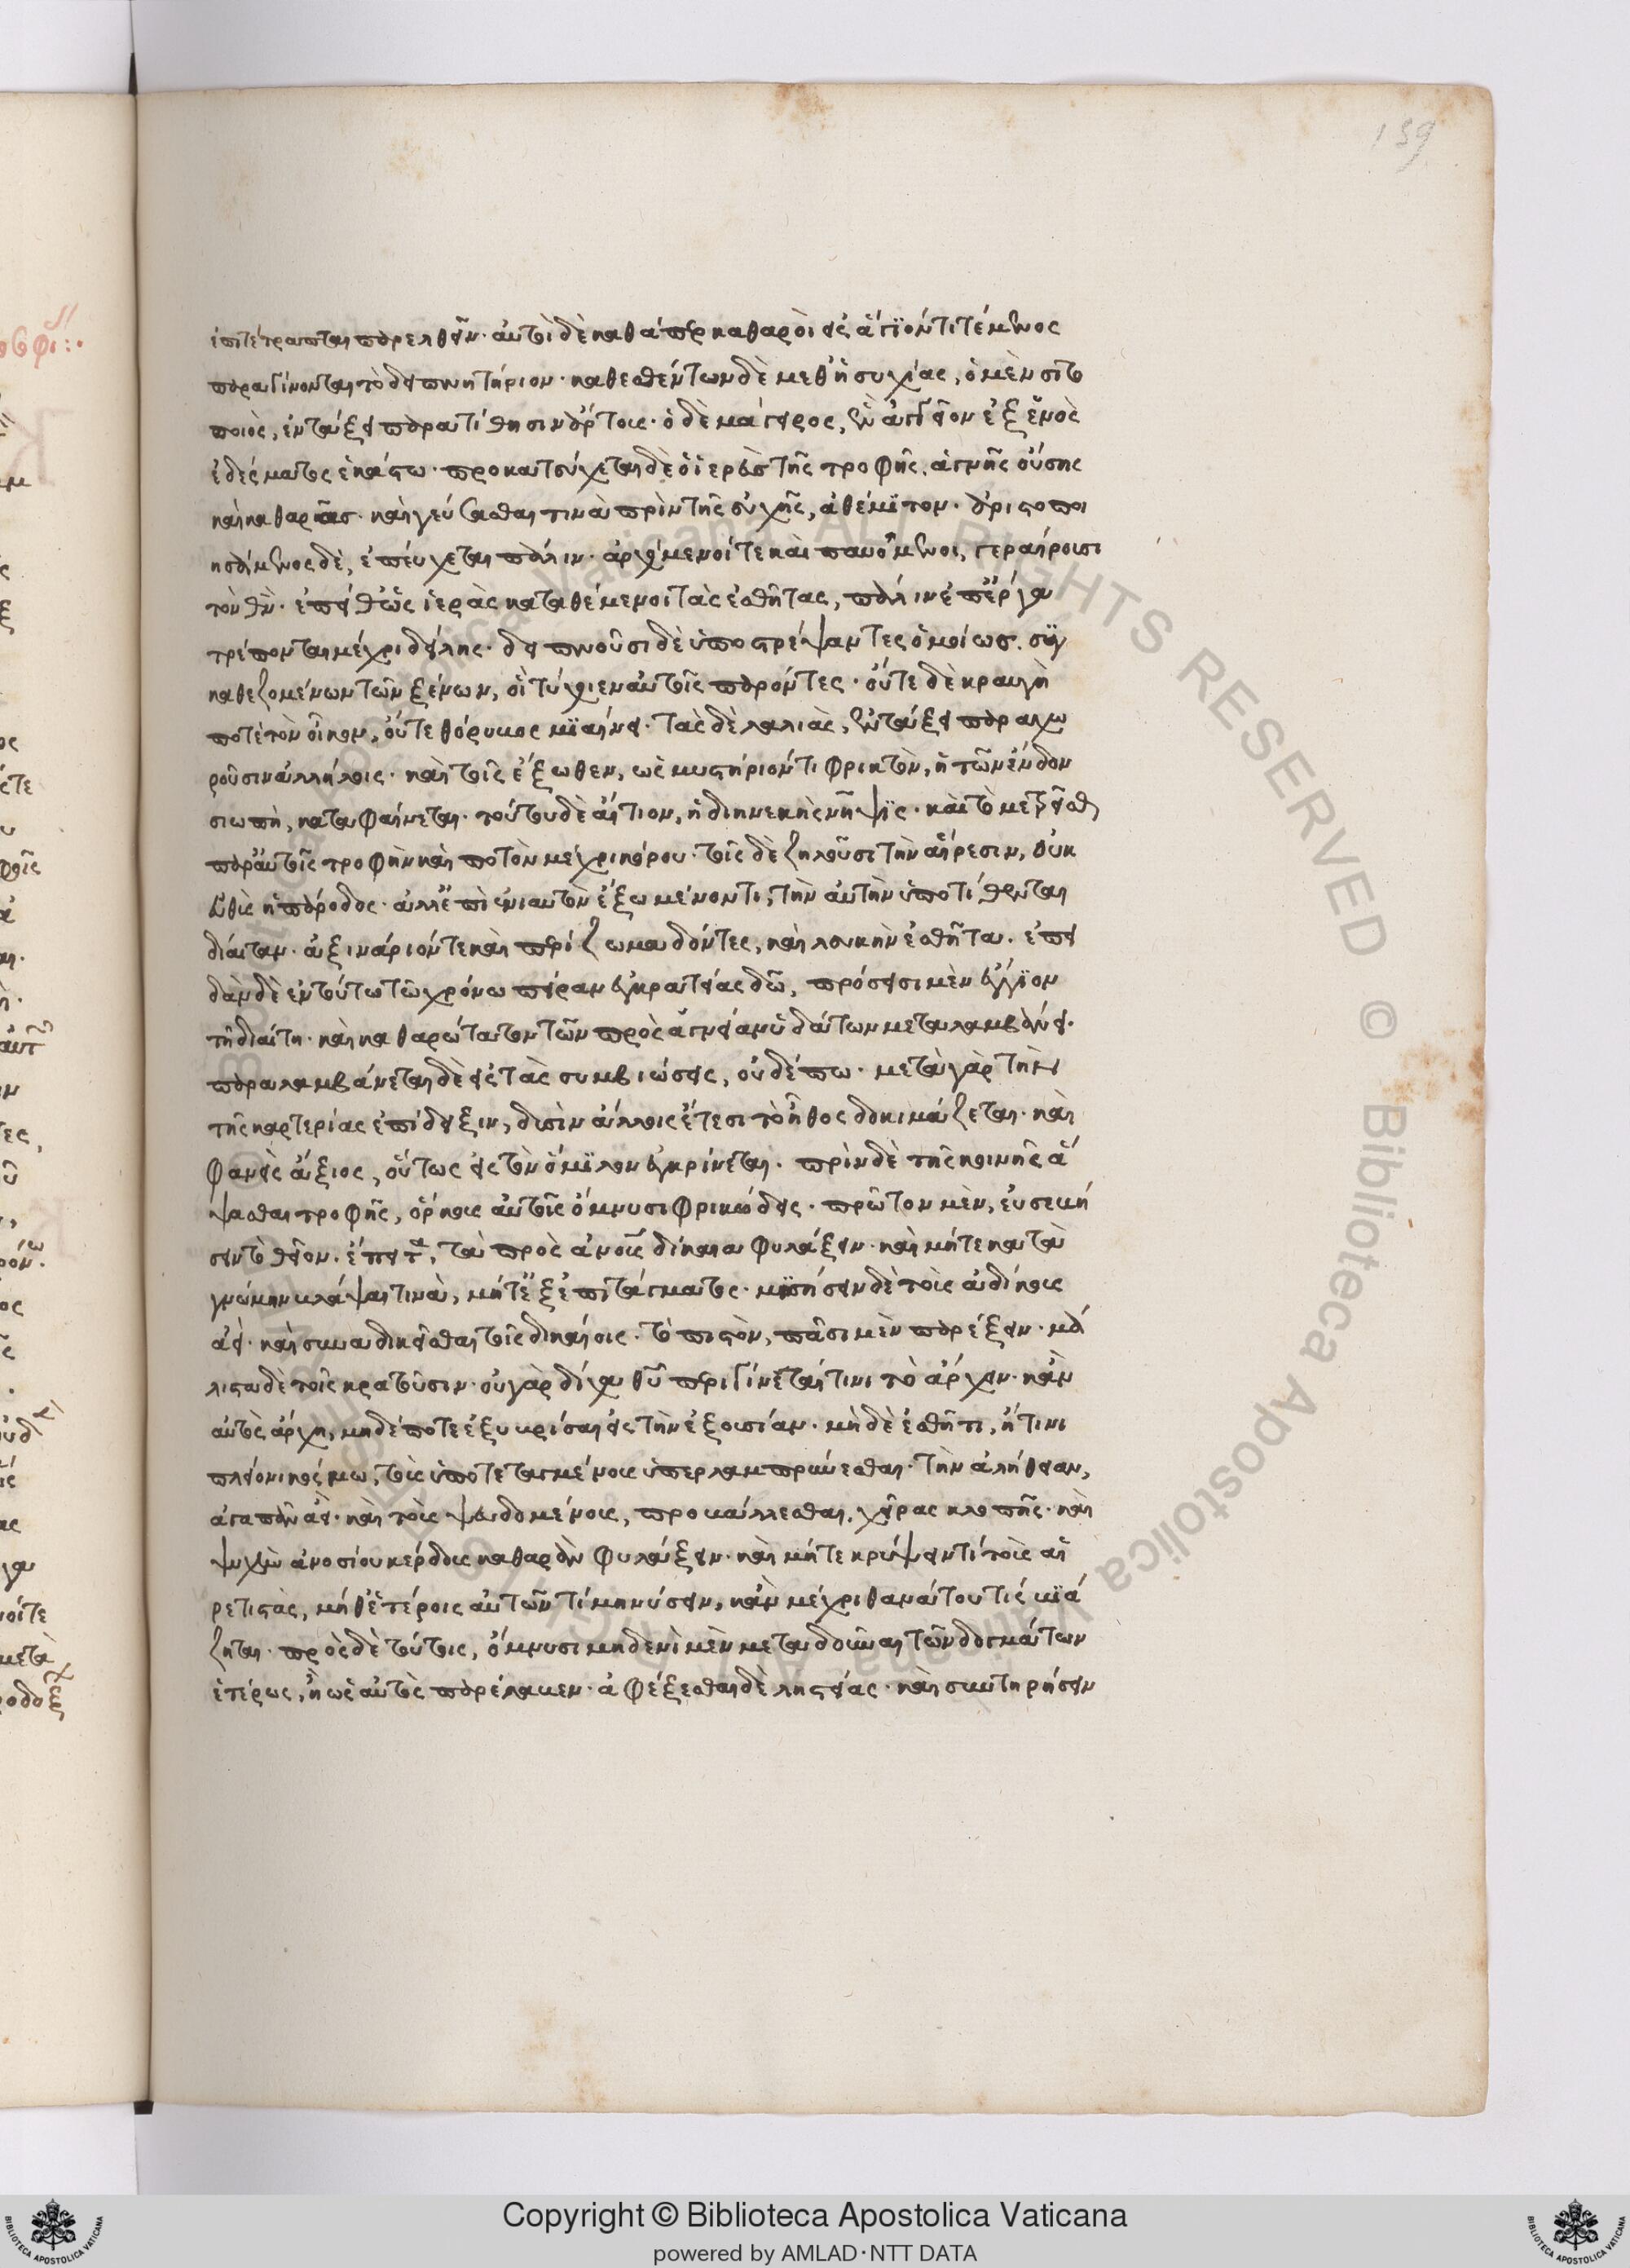 ἐπιτέτραπται παρελθεῖν· αὐτοὶ δὲ καθάπερ καθαροὶ εἰς ἅγιόν τι τέμενος
παραγίνονται τὸ δειπνητήριον· καθεσθέντων δὲ μεθ' ἡσυχίας, ὁ μὲν σιτο
ποιὸς, ἐν τάξει παρατίθησιν ἄρτους· ὁ δὲ μάγειρος, ἓν ἀγγεῖον ἐξ ἑνὸς
ἐδέσματος ἑκάστω· προκατεύχεται δὲ ὁ ἱερεὺς τῆς τροφῆς. ἁγνῆς οὔσης
καὶ καθαρᾶς· καὶ γεύσασθαι τινὰ πρὶν τῆς εὐχῆς, ἀθέμιτον· ἀριστοποι
ησαμένοις δὲ, ἐπεύχεται πάλιν· ἀρχόμενοί τε καὶ παυόμενοι, γεραίρουσι
τὸν θεόν· ἔπειθ' ὡς ἱερὰς καταθέμενοι τὰς ἐσθῆτας, πάλιν ἐπ' ἔργα
τρέπονται μέχρι δείλης· δειπνοῦσι δὲ ὑποστρέψαντες ὁμοίως. συγ
καθεζομένων τῶν ξένων, εἰ τύχοιεν αὐτοῖς παρόντες· οὔτε δὲ κραυγὴ
ποτὲ τὸν οἶκον, οὔτε θόρυβος μιαίνει· τὰς δὲ λαλιὰς, ἐν τάξει παραχω
ροῦσιν ἀλλήλοις· καὶ τοῖς ἔξωθεν, ὡς μυστήριόν τι φρικτὸν, ἡ τῶν ἔνδον
σιωπὴ, καταφαίνεται. τούτου δὲ αἴτιον, ἡ διηνεκὴς νῆψις· καὶ τὸ μετρεῖσθαι
παρ' αὐτοῖς τροφὴν καὶ ποτὸν μέχρι κόρου· τοῖς δὲ ζηλοῦσι τὴν αἵρεσιν, οὐκ
εὐθὺς ἡ πάροδος· ἀλλ' ἐπὶ ἐνιαυτὸν ἔξω μένοντι, τὴν αὐτὴν ὑποτίθενται
δίαιταν· ἀξινάριόν τε καὶ περίζωμα δόντες, καὶ λευκὴν ἐσθῆτα. ἐπει
δὰν δὲ ἐν τούτω τῶ χρόνω πεῖραν ἐγκρατείας δῶ, πρόσεισι μὲν ἔγγιον
τῆ διαίτη· καὶ καθαρωτάτον τῶν πρὸς ἁγνείαν ὑδάτων μεταλαμβάνει·
παραλαμβάνεται δὲ εἰς τὰς συμβιώσεις, οὐδέπω· μετὰ γὰρ τὴν
τῆς καρτερίας ἐπίδειξιν, δυσὶν ἄλλοις ἔτεσι τὸ ἦθος δοκιμάζεται· καὶ
φανεὶς ἄξιος, οὕτως εἰς τὸν ὅμιλον ἐγκρίνεται. πρὶν δὲ τῆς κοινῆς ἅ
ψασθαι τροφῆς, ὅρκους αὐτοῖς ὄμνυσι φρικώδεις· πρῶτον μὲν, εὐσεβή
σειν τὸ θεῖον. ἔπειτα, τὰ πρὸς ἀνους δίκαια φυλάξειν· καὶ μήτε κατὰ
γνώμην βλάψαι τινὰ, μήτ' ἐξ ἐπιτάγματος· μισήσειν δὲ τοὺς ἀδίκους
ἀεὶ· καὶ συναδικεῖσθαι τοῖς δικαίοις· τὸ πιστὸν, πᾶσι μὲν παρέξειν· μά
λιστα δὲ τοῖς κρατοῦσιν· οὐ γὰρ δίχα θῦ περιγίνεταί τινι τὸ ἄρχειν· κἂν
αὐτὸς ἄρχη, μηδέποτε ἐξυβρίσαι εἰς τὴν ἐξουσίαν· μὴ δὲ ἐσθῆτι, ἤ τινι
πλείονι κόσμω, τοὺς ὑποτεταγμένους ὑπερλαμπρύνεσθαι· τὴν ἀλήθειαν,
ἀγαπᾶν ἀεὶ· καὶ τοὺς ψευδομένους, προβάλλεσθαι, χεῖρας κλοπῆς· καὶ
ψυχὴν ἀνοσίου κέρδους καθαρὰν φυλάξειν· καὶ μήτε κρύψειν τί τοὺς αἱ
ρετιστὰς, μήθ' ἑτέροις αὐτῶν τί μηνύσειν, κἂν μέχρι θανάτου τὶς βιά
ζηται· πρὸς δὲ τούτοις, ὄμνυσι μηδενὶ μὲν μεταδοῦναι τῶν δογμάτων
ἑτέρως, ἢ ὡς αὐτὸς παρέλαβεν· ἀφέξεσθαι δὲ ληστείας· καὶ συντηρήσειν